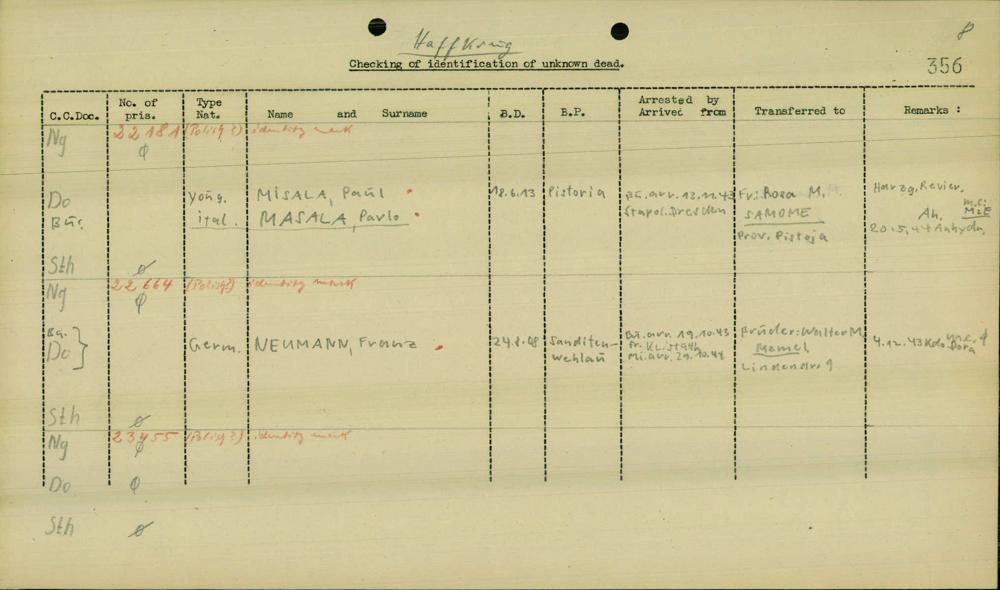 8
Haffkrug
Checking of identification of unknown dead.
356
C.C.Doc. No. of pris. Type Nat. Name and Surname B.D. B.P. Arrested by Arrived from Transferred to Remarks :
Ng 22181 (Polish?) identity mark
Ø
Do Yoûg. MISALA, Paûl 18.6.13 Pistoria Bû. arr. 13.11.43 Fr: Rosa M. Harzg. Revier.
Bû. ital. MASALA, Pavlo Stapol. Dresden SAMOME An.
Prov. Pistoja 20.5.44 Anhydr.
Sth Ø
Ng 22664 (Polish?) identity mark
Ø
Bû.
Do Germ. NEUMANN, Franz 24.8.08 Sanditen- Wehlaû Bû. arr. 19.10.43 Brûder: Walter M. 4.12.43 Kdo. Dora
Mi. arr. 29.10.44 Memel
Lindenstr. 9
Sth Ø
Ng 23455 (Polish?) identity mark
Ø
Do Ø
Sth Ø